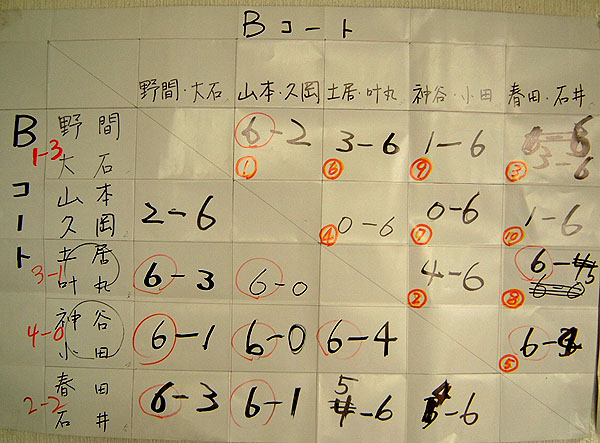 Bコート
野間・大石 山本・久岡 土居・叶丸 神谷・小田 春田・石井
Bコート
野間 6-2 3-6 1-6 3-6
1-3 大石 ① ⑥ ⑨ ③
山本 2-6 0-6 0-6 1-6
久岡 ④ ⑦ ⑩
土居 6-3 6-0 4-6 6-5
3-1 叶丸 ② ⑧
神谷 6-1 6-0 6-4
4-0 小田 ⑤
春田 6-3 6-1 5-6 4-6
2-2 石井